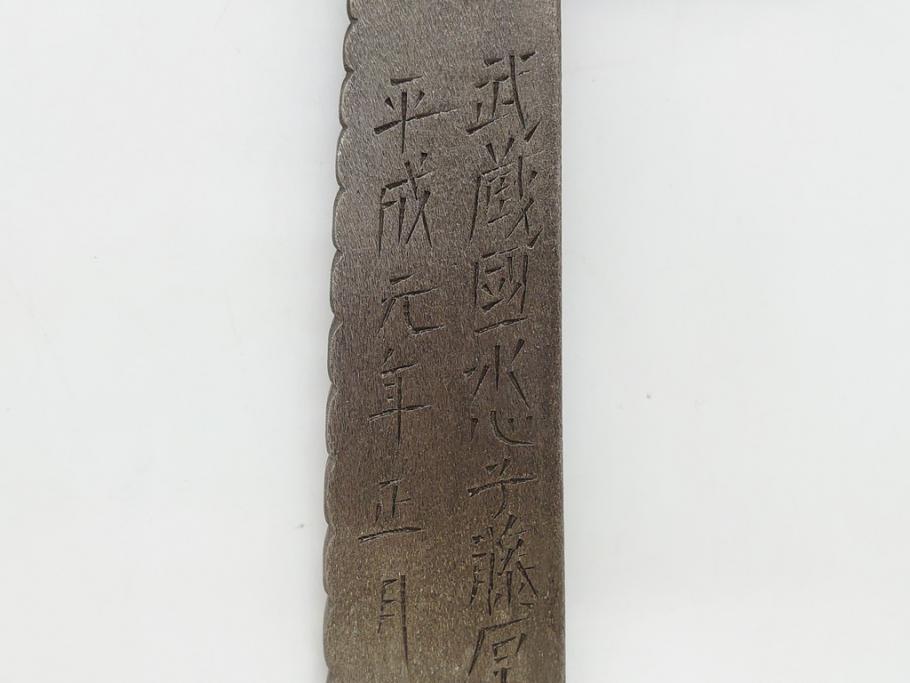 武蔵國水心子藤原
平成元年正月